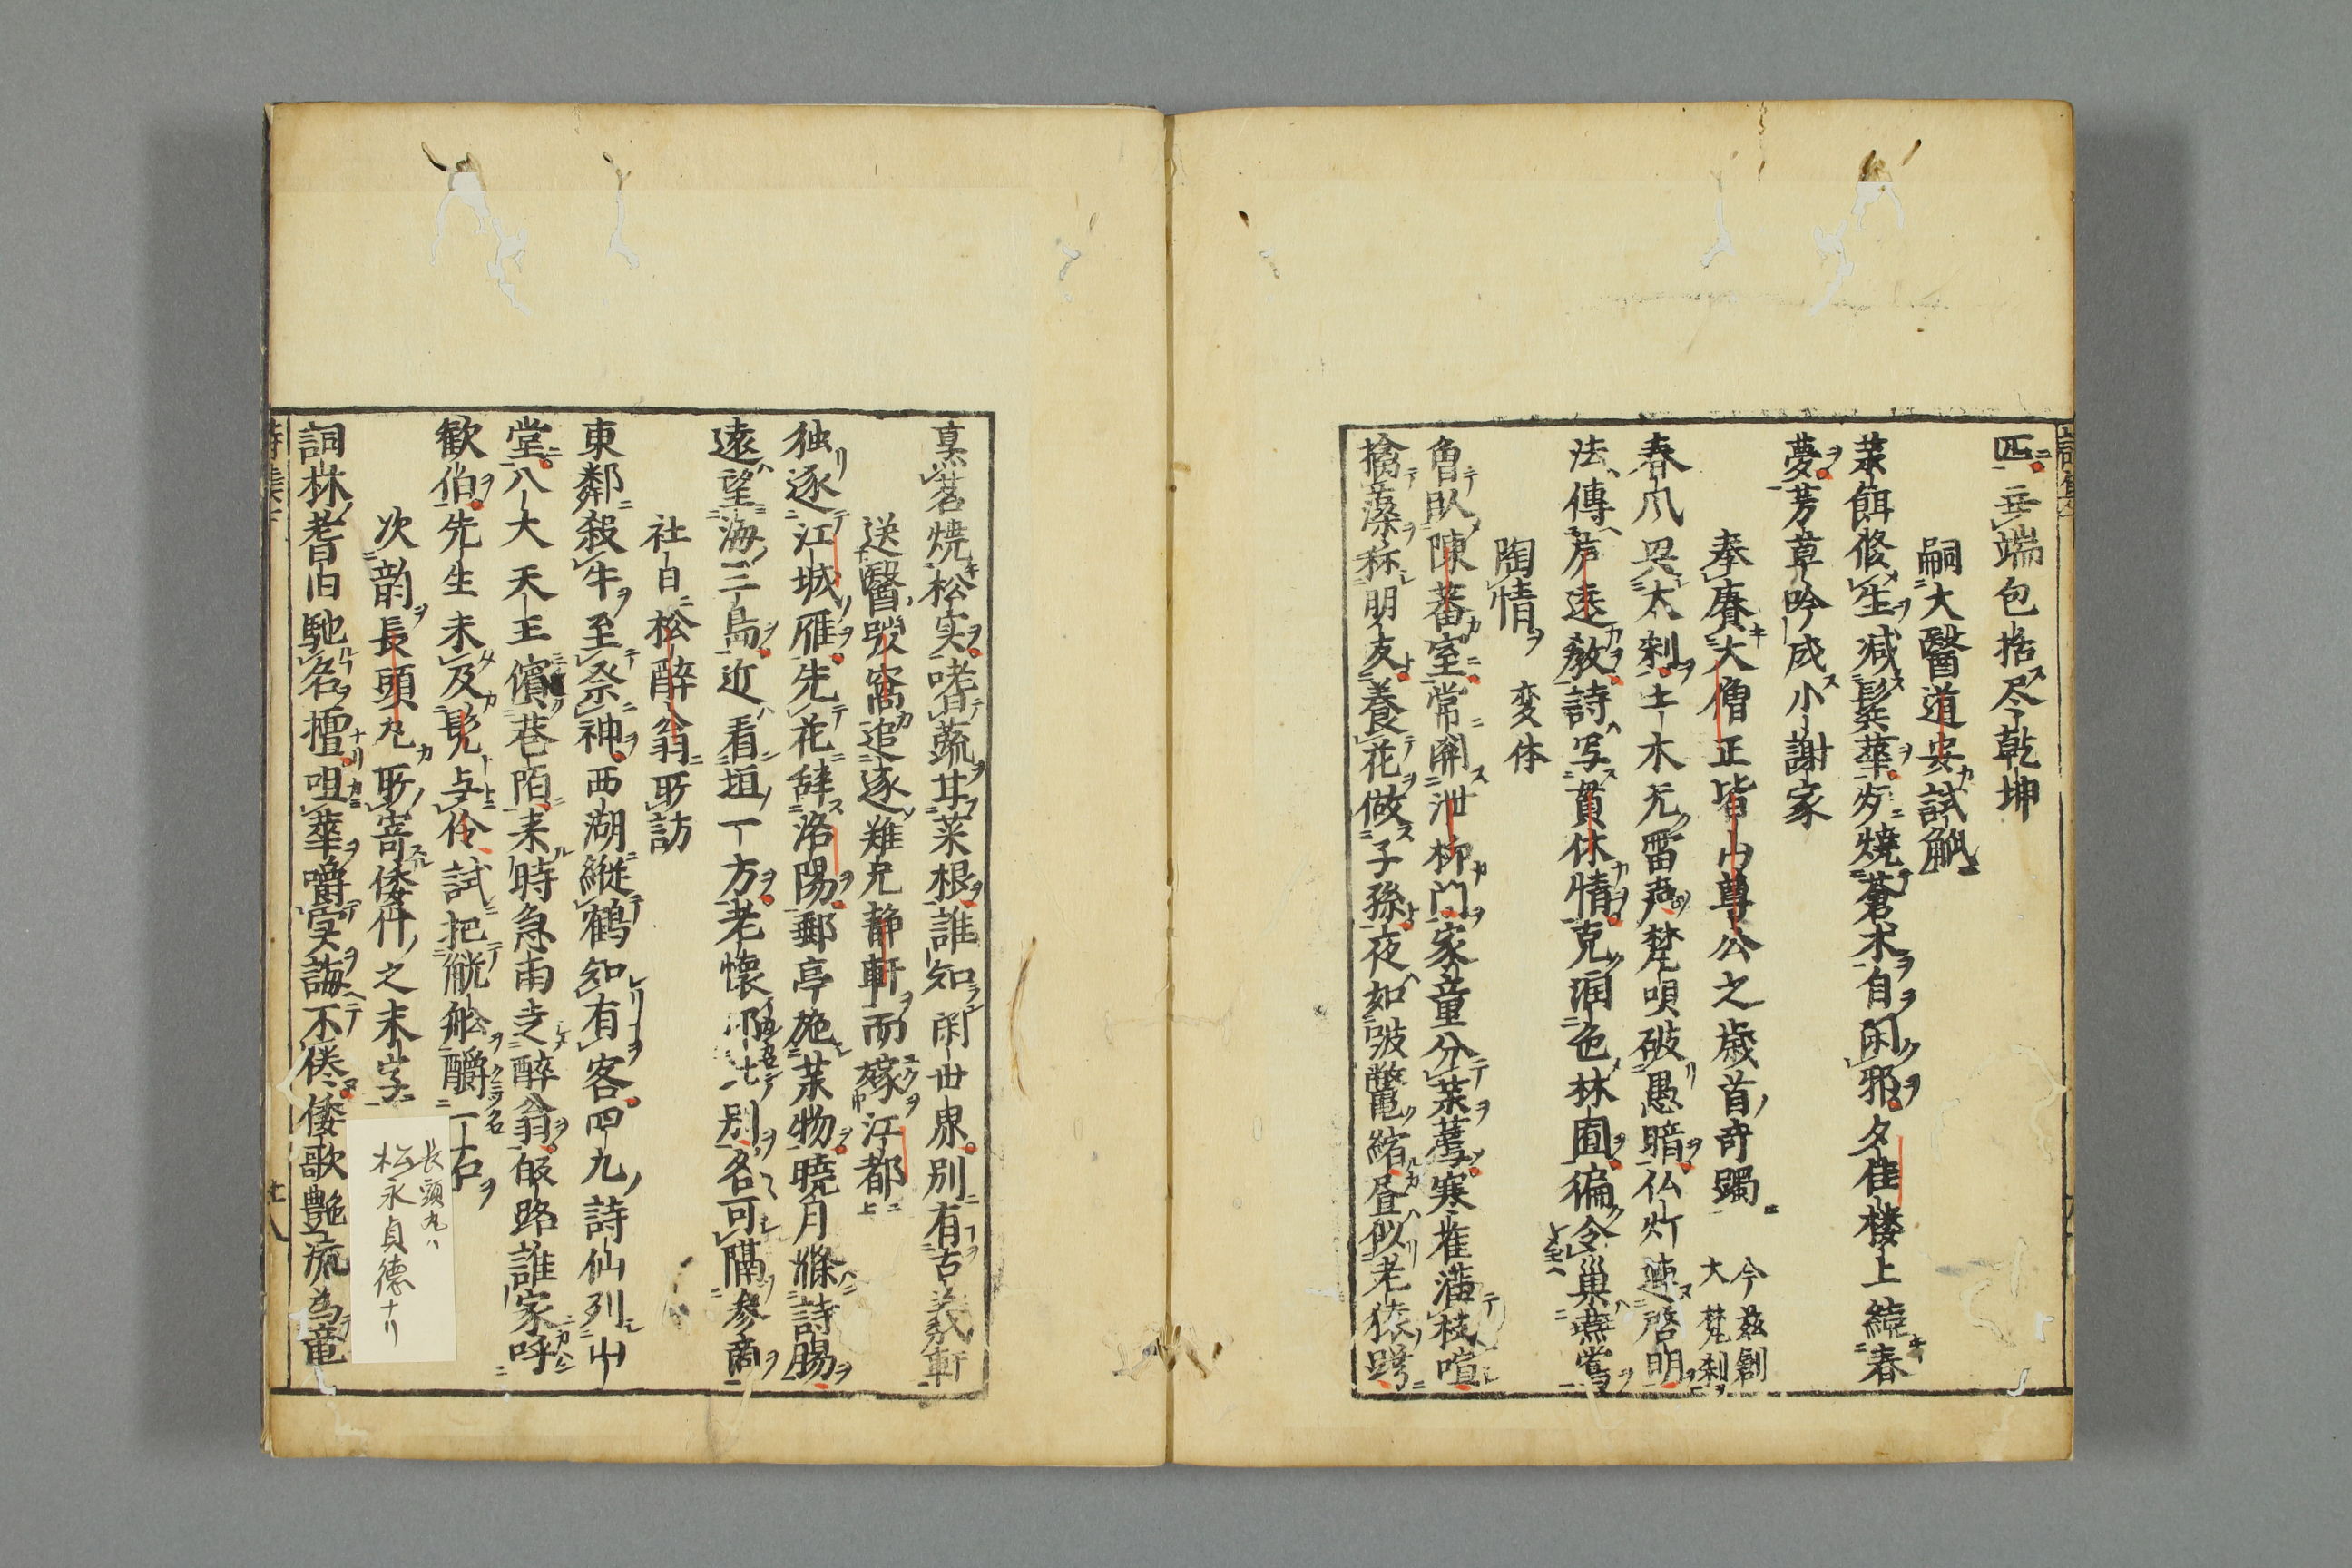 匹無端包括尽乾坤
嗣大醫道安試觚
菓餌修生減鬂華歹焼蒼朮自閑邪夕佳楼上繞春
夢芳草吟成小謝家
奉賡大僧正皆山尊公之歳首奇躅
今茲創
大梵刹
春爪太刹土木无雷声梵唄破愚暗仏灯連啓明
法傳芦遠教詩写貫休情克潤色林園徧令巣燕鴬
陶情 変体
魯臥陳蕃室常閉泄柳門家童分菓蕚寒雀満枝喧
摛藻称朋友養花做子孫夜如跛鼈縮昼似老猿蹲
烹茗焼松実啫蔬甘菜根誰知閑世界別有舌義軒
送醫啖窩追逐難兄静軒而嫁江都
独逐江城雁先花辞洛陽郵亭施菓物暁月滌詩腸
遠望海三島近看垣一方老懐七別名可隔参商
社日松醉翁所訪
東鄰殺牛至祭神西湖縦鶴知有客四九詩仙列山
堂八大天王儐巷陌来時急雨走醉翁皈路誰家呼
歓伯先生未及髡与伶試把觥船釂一石
次韵長頭丸所寄倭什之末字
長頭丸ハ
松永貞德ナリ
詞林耆旧馳名擅咀華嚼実誨不倦倭歌艶流為竜